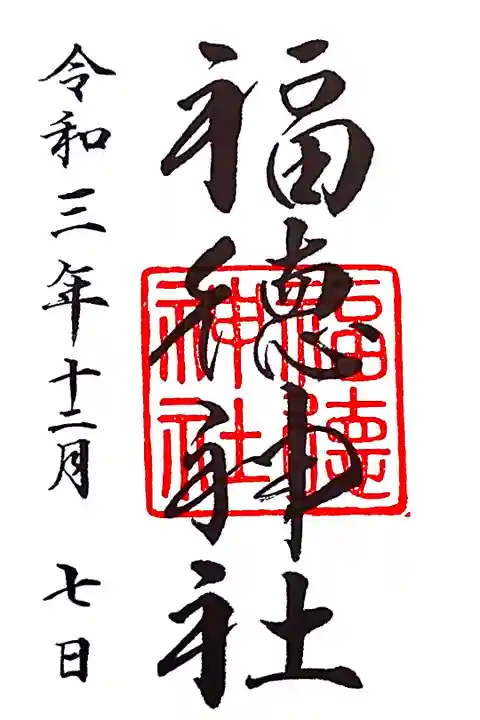 福徳神社
福徳
神社
令和三年十二月 七日